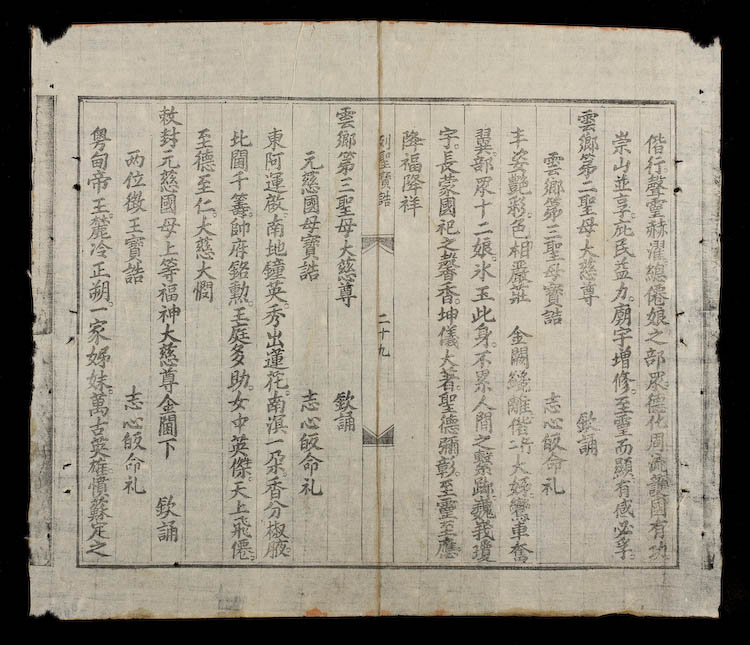 偕行聲靈赫濯總僊娘之部衆德化周流護國有功
崇山並享庇民益力廟宇增修至靈而顯有感必孚
雲鄉第二聖母大慈尊 欽誦
雲鄉第三聖母寶誥 志心皈命礼
丰姿艷彩色相嚴莊 金闕 雕偕行大姊鸞車奮
翼部衆十二娘氷玉此身不累人間之繫跡巍峩瓊
宇長蒙國祀之馨香坤儀大著聖德彌彰至靈至應
降福降祥
列聖寶誥 二十九
雲鄉第三聖母大慈尊 欽誦
元慈國母寶誥 志心皈命礼
東阿運啟南地鐘英秀出蓮花南溟一朶香分椒腋
北閫千籌帥府銘勲王庭多助女中英傑天上飛僊
至德至仁大慈大憫
敕封元慈國母上等福神大慈尊金闕下 欽誦
两位徵王寶誥 志心皈命礼
粤甸帝王麓冷正朔一家姊妹萬古英雄憤蘇定之